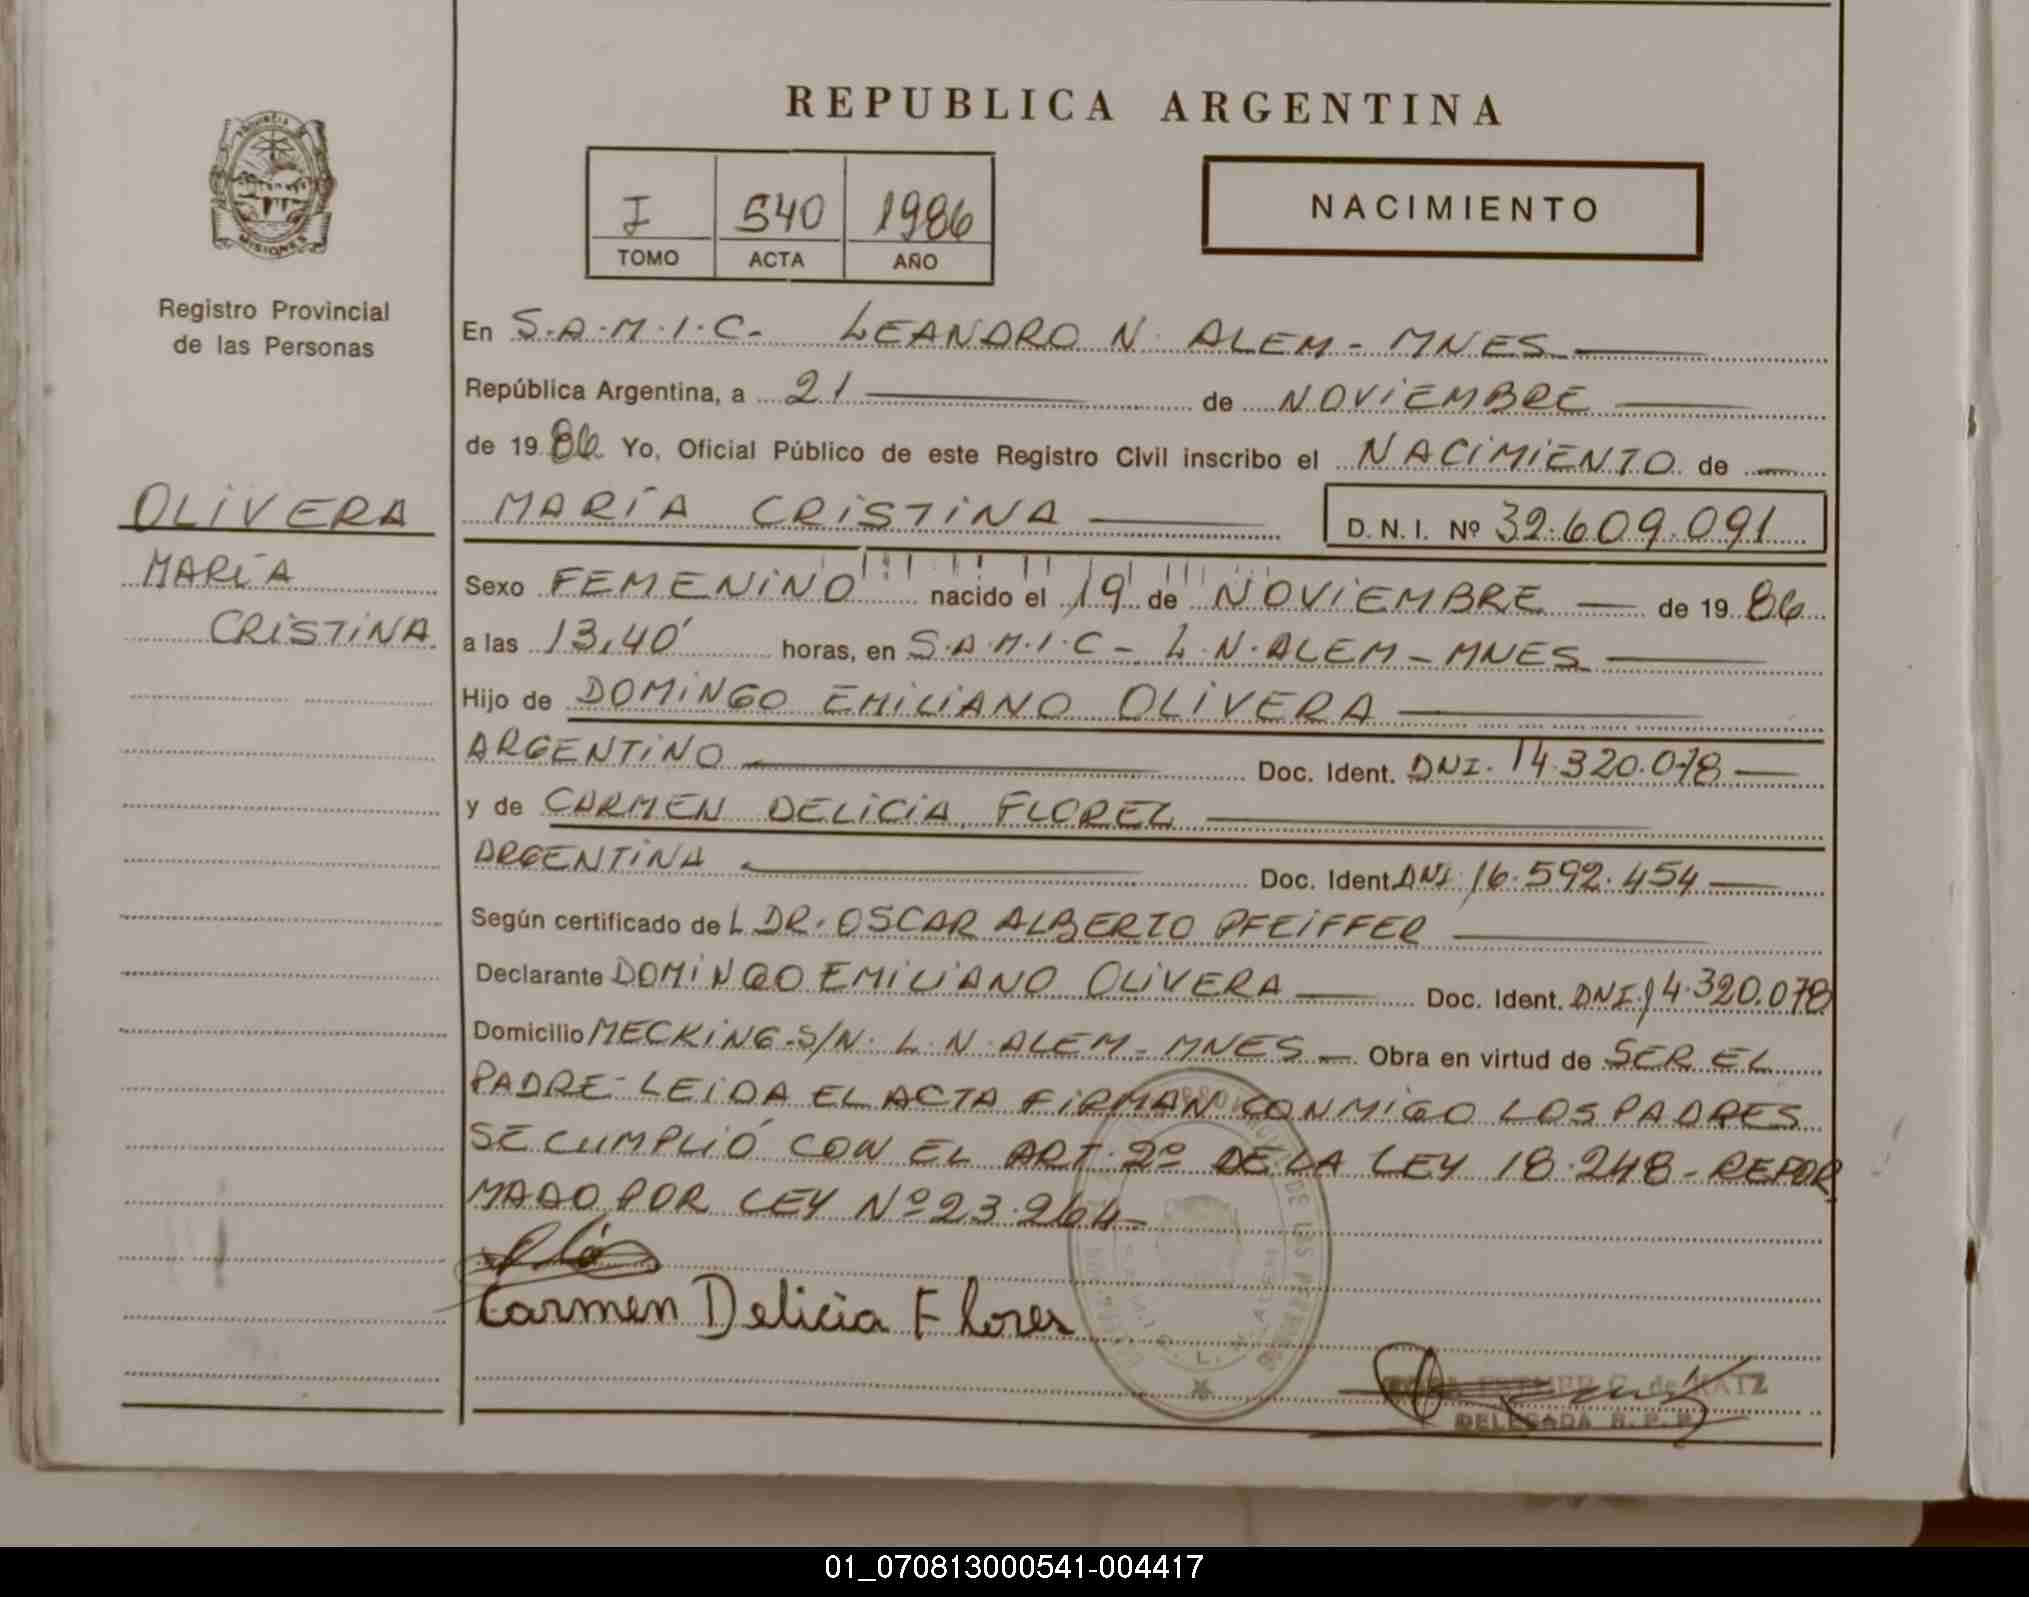 REPUBLICA ARGENTINA
PROVINCIA
MISIONES
Registro Provincial
de las Personas
I 540 1986
TOMO ACTA AÑO
NACIMIENTO
En S.A.M.I.C- LEANDRO N. ALEM - MNES
República Argentina, a 21 de NOVIEMBRE
de 1986 Yo, Oficial Público de este Registro Civil inscribo el NACIMIENTO de
OLIVERA
MARÍA
CRISTINA
MARÍA CRISTINA D.N.I. Nº 32.609.091
Sexo FEMENINO nacido el 19 de NOVIEMBRE de 1986
a las 13,40' horas, en S.A.M.I.C - L.N.ALEM - MNES
Hijo de DOMINGO EMILIANO OLIVERA
ARGENTINO Doc. Ident. DNI. 14.320.078
y de CARMEN DELICIA FLOREZ
ARGENTINA Doc. Ident. DNI 16.592.454
Según certificado deL DR. OSCAR ALBERTO PFEIFFER
Declarante DOMINGO EMILIANO OLIVERA Doc. Ident. DNI.14.320.078
Domicilio MECKING-S/N. L.N.ALEM - MNES Obra en virtud de SER EL
PADRE- LEIDA EL ACTA FIRMAN CONMIGO LOS PADRES
SE CUMPLIÓ CON EL ART. 2º DE LA LEY 18.248 - REFOR
MADO POR LEY Nº 23.264-
Carmen Delicia Flores
DE LAS PER
de RATZ
DELEGADA R.P.P.
01_070813000541-004417